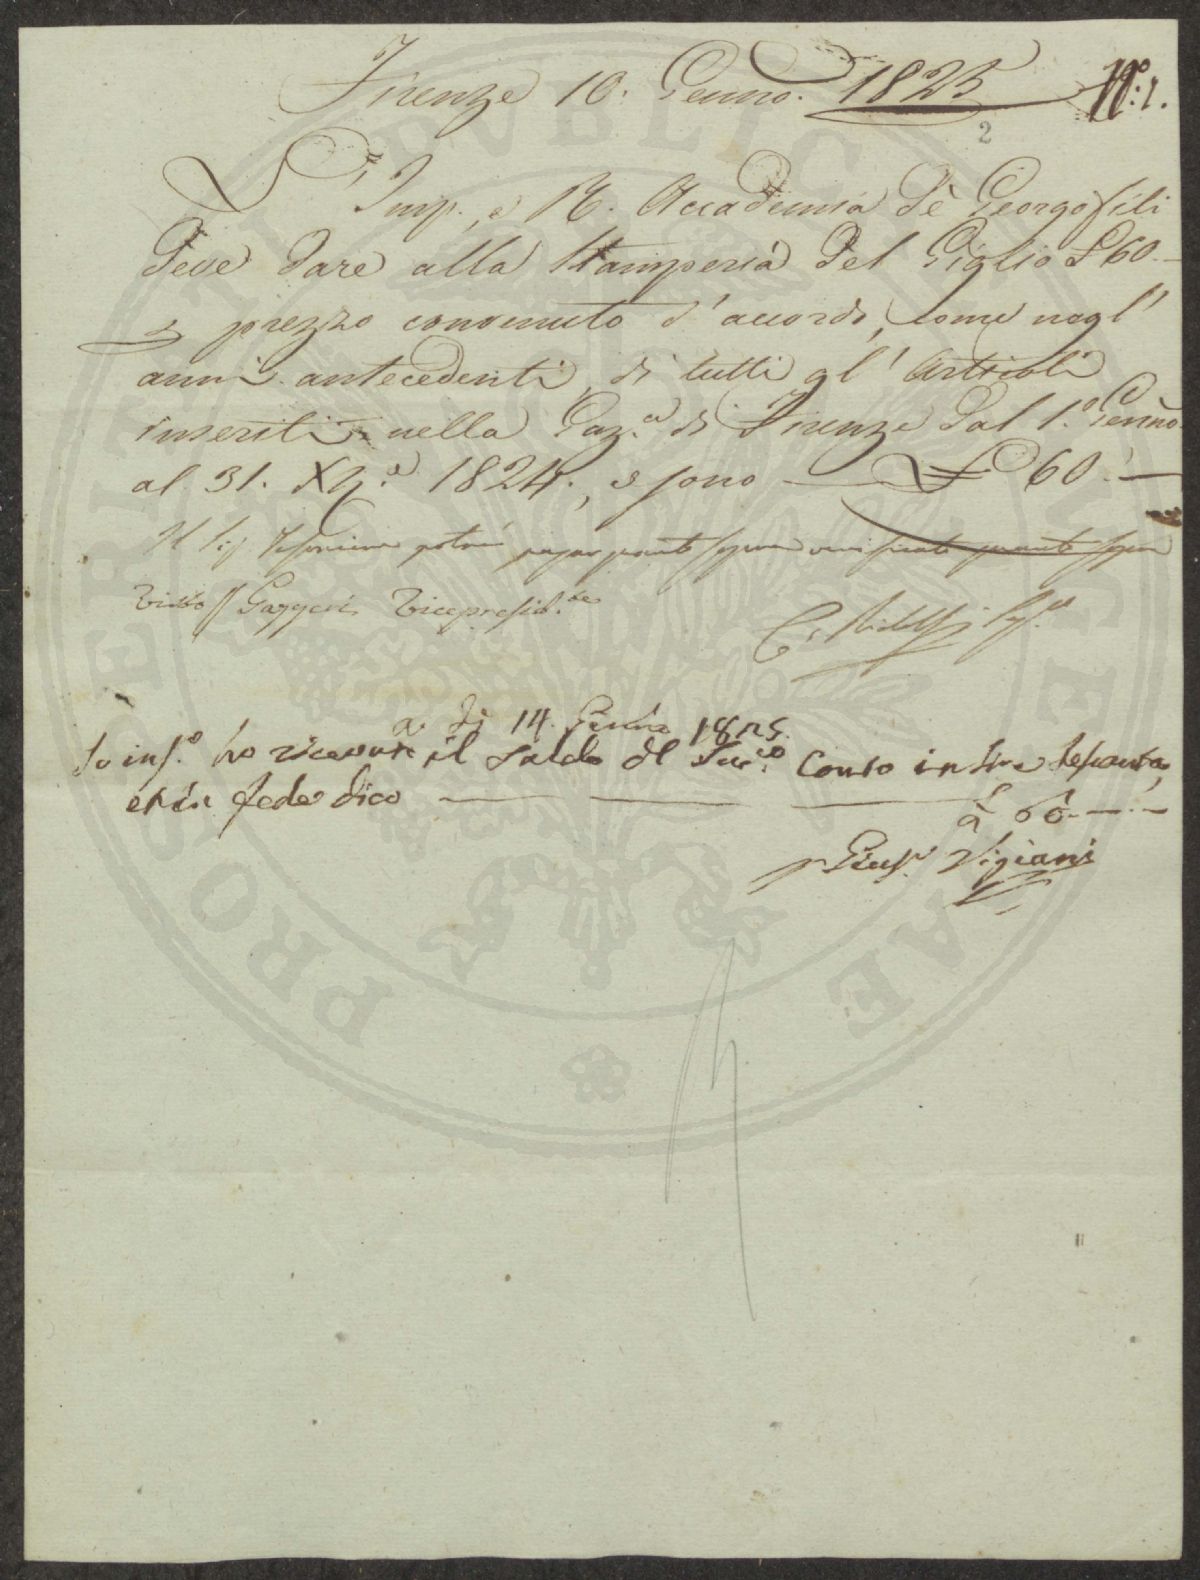 Firenze 10. Genno. 1825 N.º 1.
2
L' Imp. e R. Accademia de' Georgofili
deve dare alla Stamperia del Giglio £ 60.—
prezzo convenuto d'accordo, come negl'
anni antecedenti, di tutti gl' Articoli
inseriti nella Gaz.ª di Firenze dal 1.º Genno.
al 31. Xb.e 1824., sono — £ 60.—
Il Sig. Tesoriere potrà pagare
Visto Gazzeri Vicepresid.te
C. Ridolfi Seg.o
a di 14. Genn.o 1825.
Io inf.o ho ricevuto il saldo del Sud.o Conto in Lire Sessanta,
e in fede dico — — — £ 60.—
Gius.e Vigiani
PUBLICAE PROSPERITATI